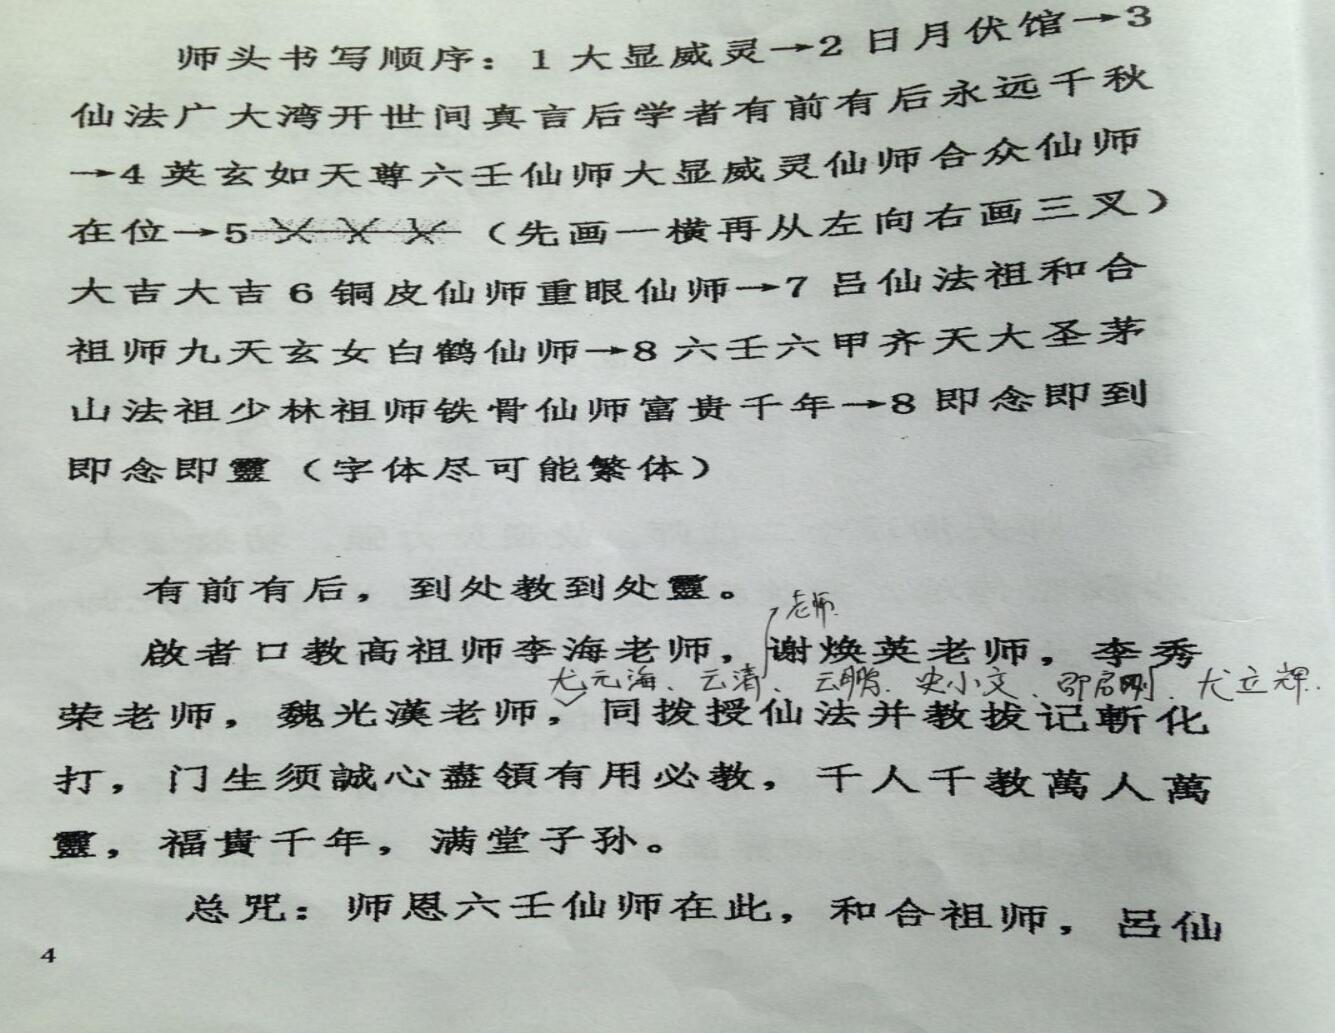 师头书写顺序：1 大显威灵→2 日月伏馆→3
仙法广大湾开世间真言后学者有前有后永远千秋
→4 英玄如天尊六壬仙师大显威灵仙师合众仙师
在位→5 （先画一横再从左向右画三叉）
大吉大吉 6 铜皮仙师重眼仙师→7 吕仙法祖和合
祖师九天玄女白鹤仙师→8 六壬六甲齐天大圣茅
山法祖少林祖师铁骨仙师富贵千年→8 即念即到
即念即靈（字体尽可能繁体）
有前有后，到处教到处靈。
老师
啟者口教高祖师李海老师，谢焕英老师，李秀
尤元海、云清、云鹏、史小文、邵启刚、尤立辉
荣老师，魏光漢老师，同拨授仙法并教拔记斬化
打，门生须誠心盡領有用必教，千人千教萬人萬
靈，福貴千年，满堂子孙。
总咒：师恩六壬仙师在此，和合祖师，呂仙
4